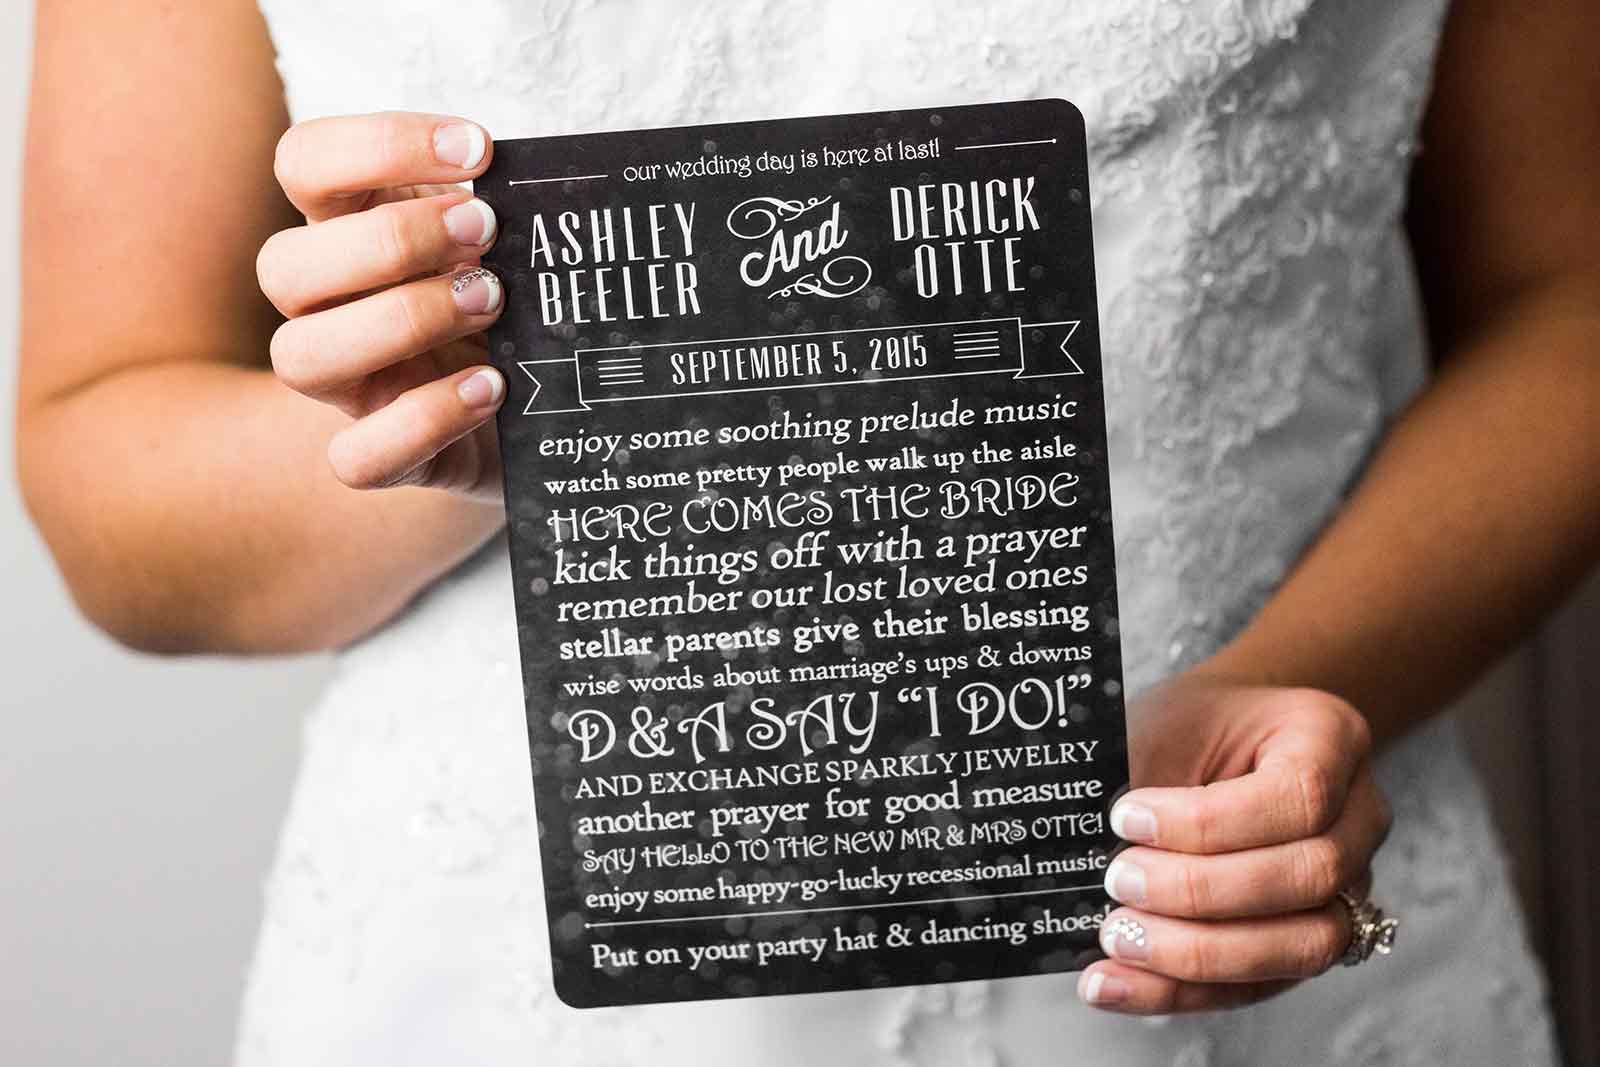 our wedding day is here at last!
ASHLEY BEELER And DERICK OTTE
SEPTEMBER 5, 2015
enjoy some soothing prelude music
watch some pretty people walk up the aisle
HERE COMES THE BRIDE
kick things off with a prayer
remember our lost loved ones
stellar parents give their blessing
wise words about marriage's ups & downs
D & A SAY “I DO!”
AND EXCHANGE SPARKLY JEWELRY
another prayer for good measure
SAY HELLO TO THE NEW MR & MRS OTTE!
enjoy some happy-go-lucky recessional music
Put on your party hat & dancing shoes!